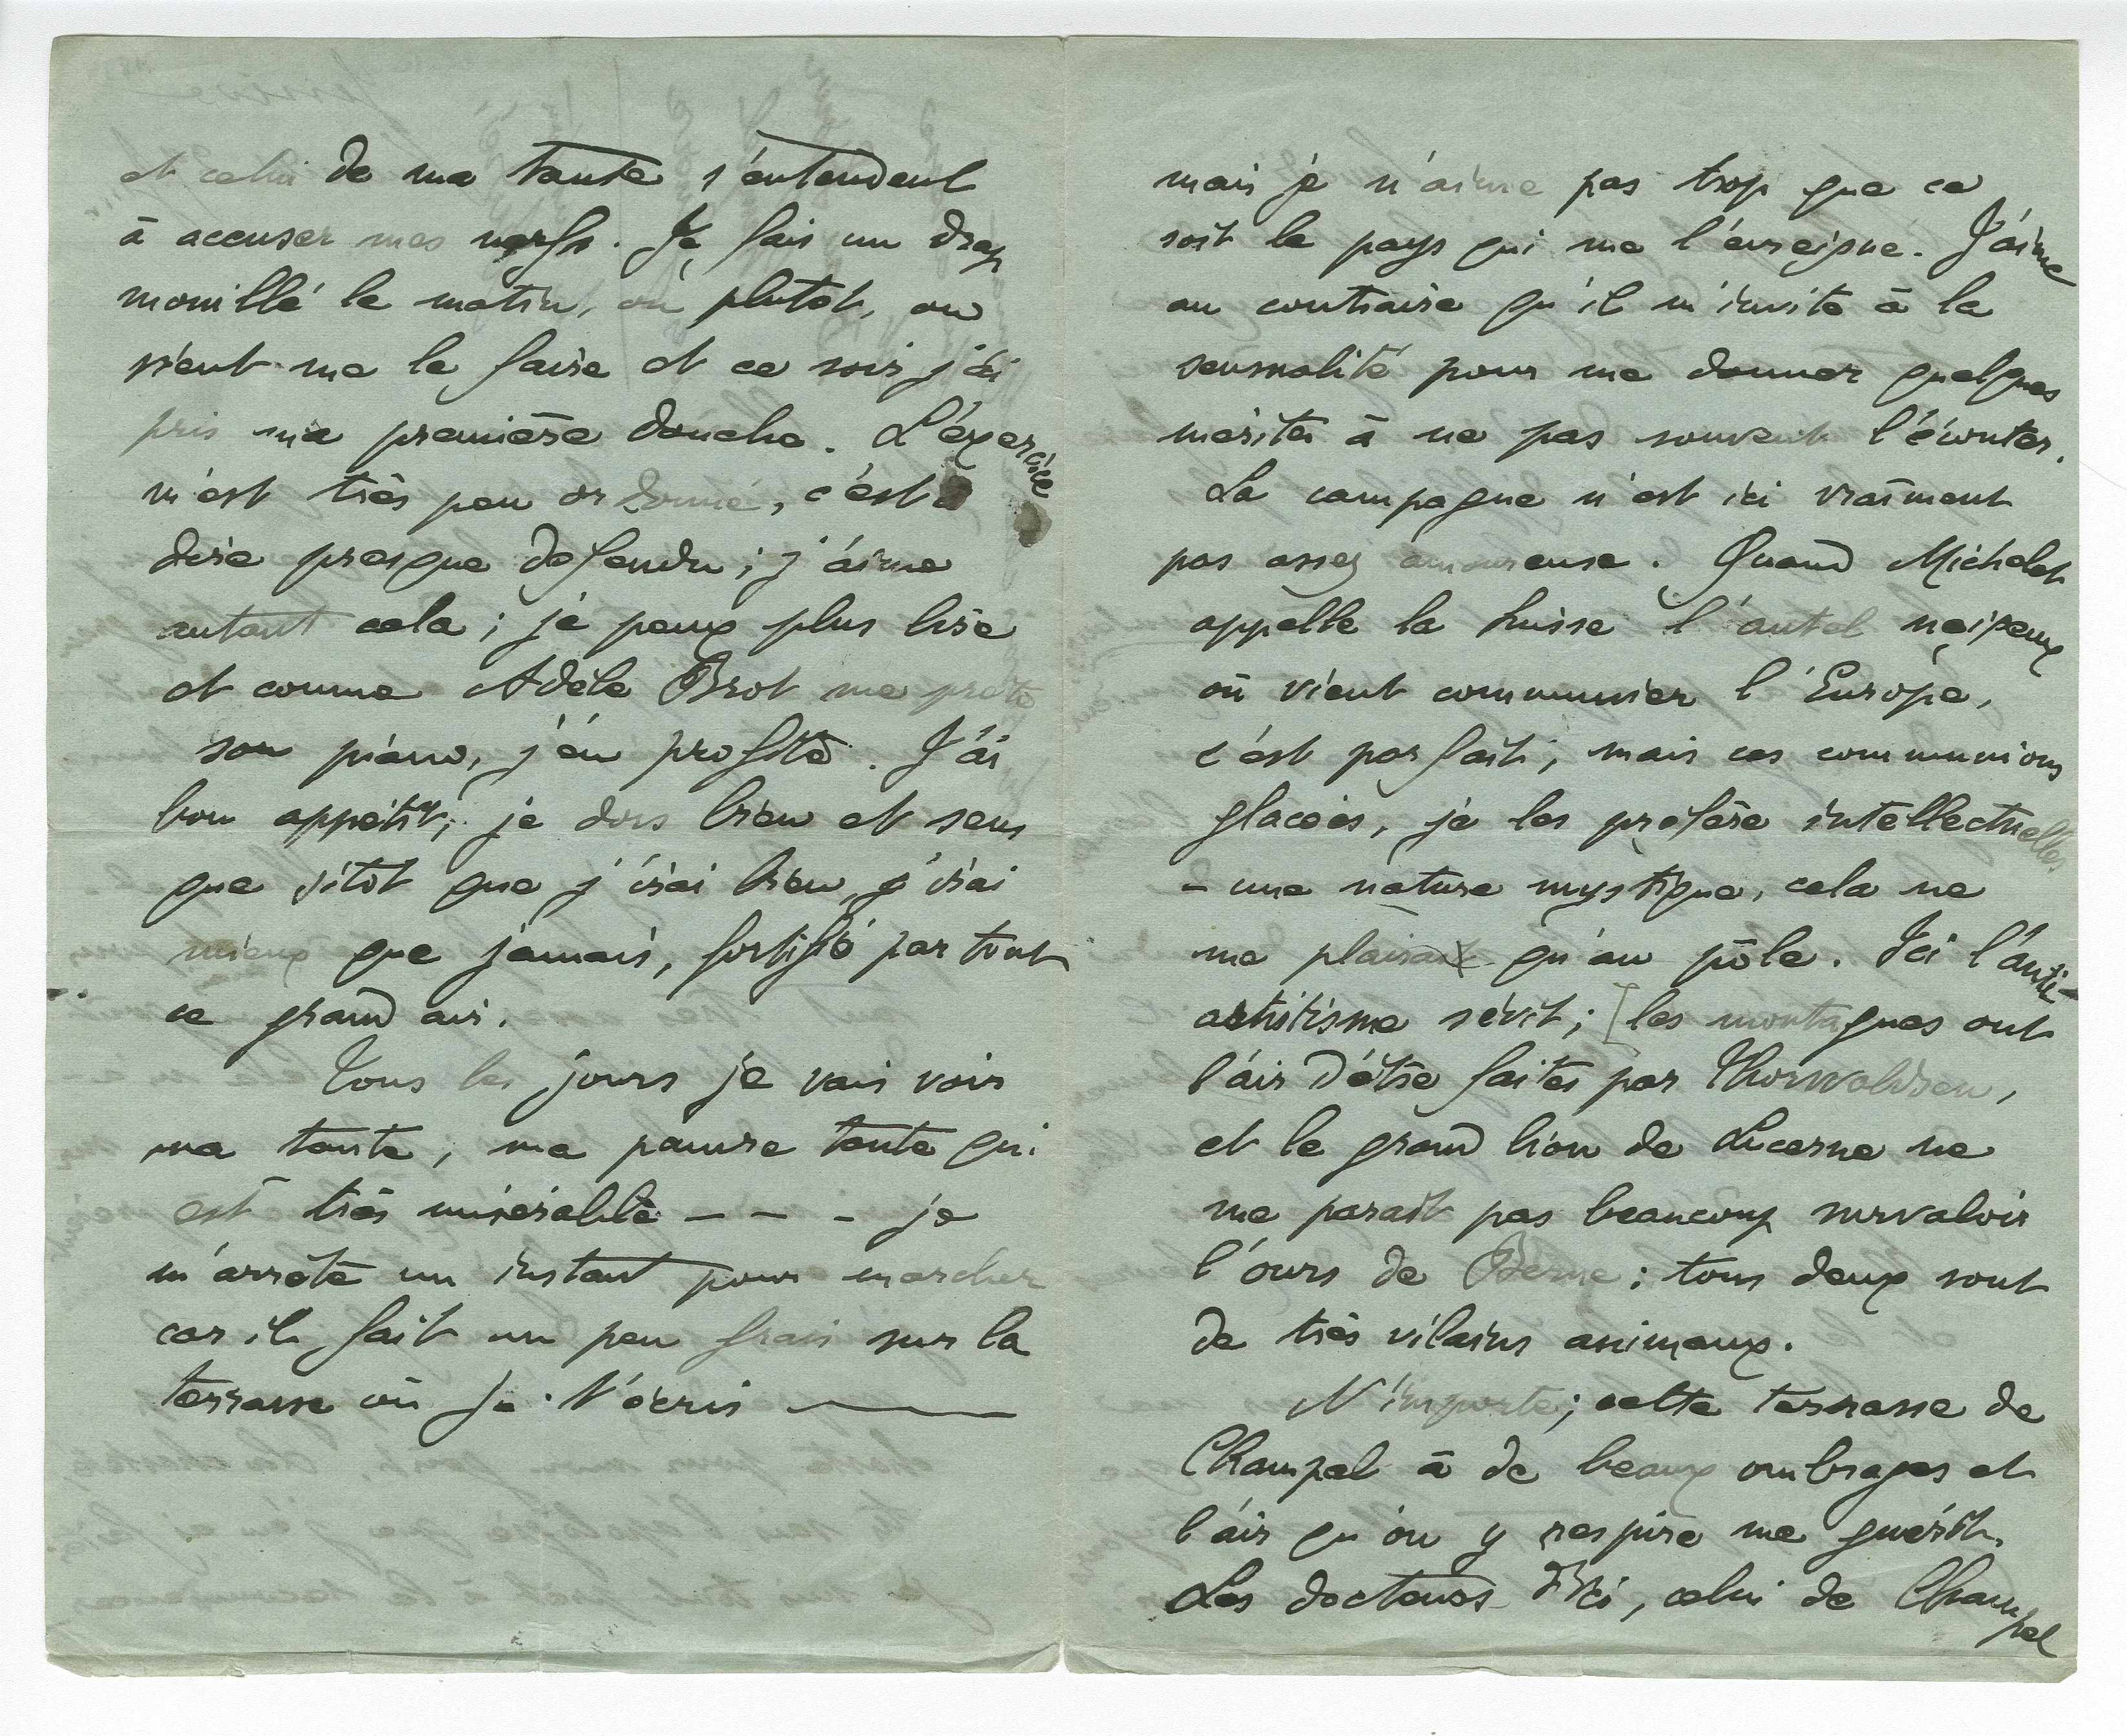 et celui de ma tante s'entendent
à accuser mes nerfs. Je fais un drap
mouillé le matin, ou plutôt, on
vient me le faire et ce soir j'ai
pris ma première douche. L'exercice
m'est très peu ordonné, c'est à
dire presque defendu; j'aime
autant cela; je peux plus lire
et comme Adèle Brot me prete
son piano, j'en profite. J'ai
bon appétit, je dors bien et sens
que sitôt que j'irai bien, j'irai
mieux que jamais, fortifié par tout
ce grand air.
Tous les jours je vais voir
ma tante; ma pauvre tante qui
est très misérable – – – je
m'arrête un instant pour marcher
car il fait un peu frais sur la
terrasse où je t'écris ———
mais je n'aime pas trop que ce
soit le pays qui me l'enseigne. J'aime
au contraire qu'il m'invite à la
sensualité pour me donner quelques
mérites à ne pas souvent l'écouter.
La campagne n'est ici vraiment
pas assez amoureuse. Quand Michelet
appelle la Suisse l'autel neigeux
où vient communier l'Europe,
c'est parfait; mais ces communions
glacées, je les préfère intellectuelles
– une nature mystique, cela ne
me plairait qu'au pôle. Ici l'anti-
artistisme sévit; [les montagnes ont
l'air d'être faites par Thorwaldsen,
et le grand lion de Lucerne ne
me parait pas beaucoup survaloir
l'ours de Berne; tous deux sont
de très vilains animaux.
N'importe; cette terrasse de
Champel à de beaux ombrages et
l'air qu'on y respire me guérit.
Les docteurs d'ici, celui de Champel